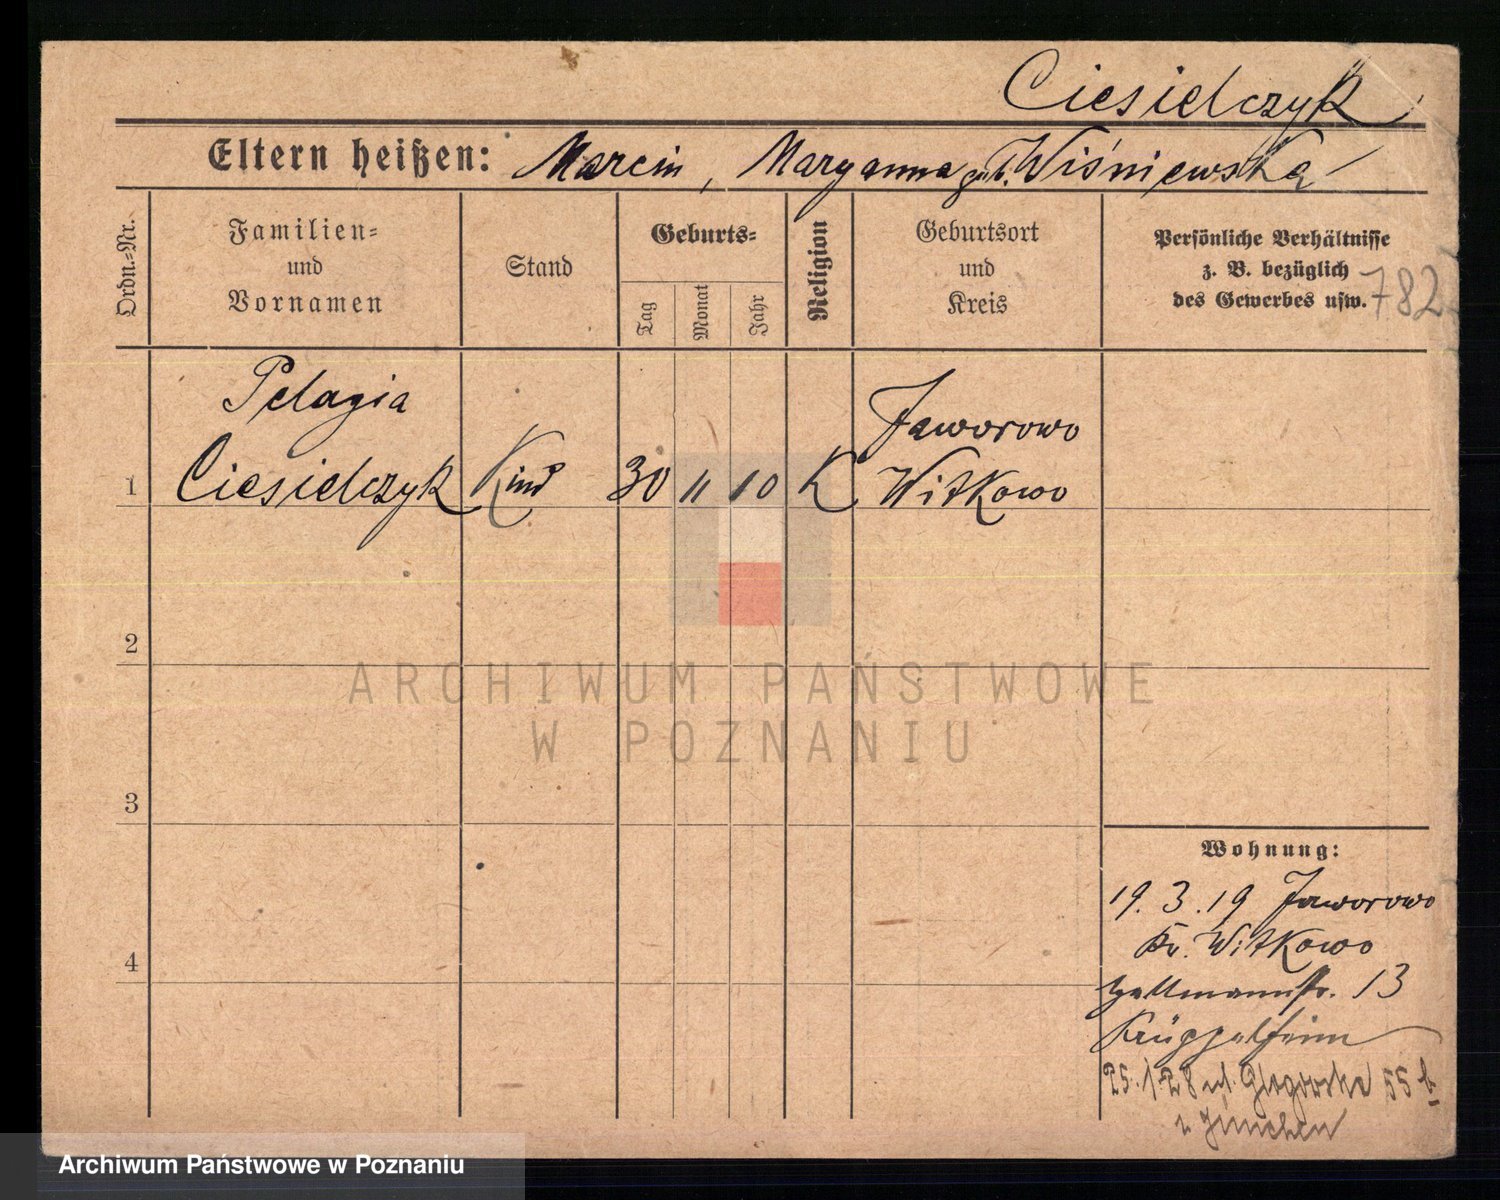 Ciesielczyk
Eltern heißen: Marcin, Maryanna geb. Wiśniewska
Ordn.-Nr.
Familien-
und
Vornamen
Stand
Geburts-
Tag
Monat
Jahr
Religion
Geburtsort
und
Kreis
Persönliche Verhältnisse
z. B. bezüglich
des Gewerbes usw.
782
Pelagia
Jaworowo
1 Ciesielczyk Kind 30 11 10 K Witkowo
2
ARCHIWUM PAŃSTWOWE
W POZNANIU
3
Wohnung:
19. 3. 19 Jaworowo
4
Kr. Witkowo
13
Krüppelheim
25. 1. 28 ul. Głogowska 55
Archiwum Państwowe w Poznaniu